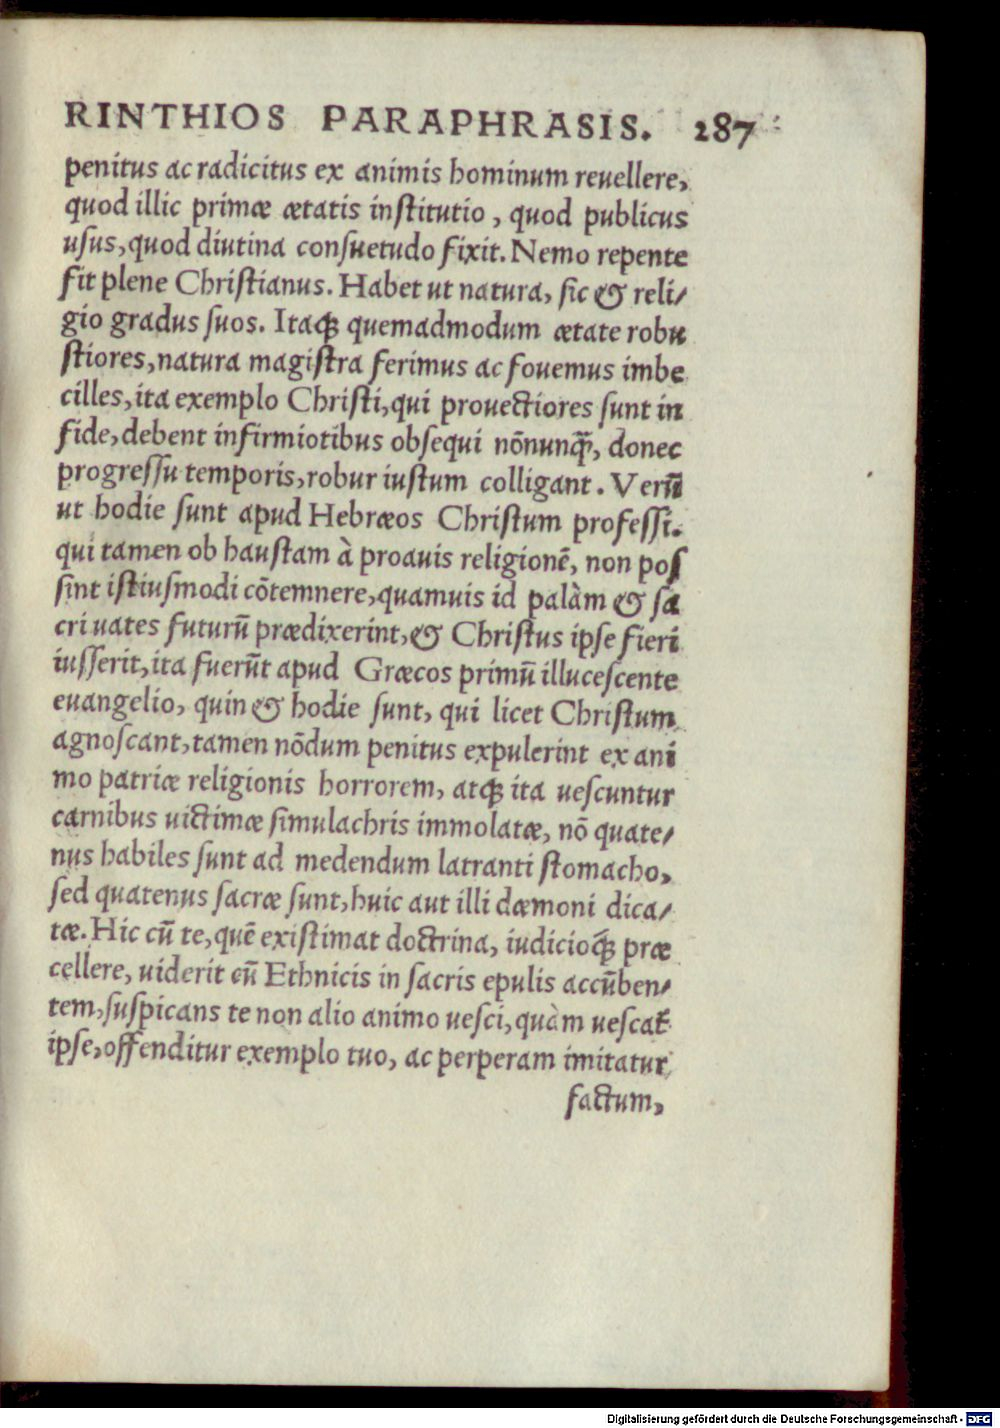 RINTHIOS PARAPHRASIS. 287
penitus ac radicitus ex animis hominum reuellere,
quod illic primæ ætatis institutio, quod publicus
usus, quod diutina consuetudo fixit. Nemo repente
fit plene Christianus. Habet ut natura, sic & reli/
gio gradus suos. Itaqꝫ quemadmodum ætate robu
stiores, natura magistra ferimus ac fouemus imbe
cilles, ita exemplo Christi, qui prouectiores sunt in
fide, debent infirmiotibus obsequi nōnunq̄, donec
progressu temporis, robur iustum colligant. Verū
ut hodie sunt apud Hebræos Christum professi.
qui tamen ob haustam à proauis religionē, non pos
sint istiusmodi cōtemnere, quamuis id palàm & sa
cri uates futurū prædixerint, & Christus ipse fieri
iusserit, ita fuerūt apud Græcos primū illucescente
euangelio, quin & hodie sunt, qui licet Christum
agnoscant, tamen nōdum penitus expulerint ex ani
mo patriæ religionis horrorem, atqꝫ ita uescuntur
carnibus uictimæ simulachris immolatæ, nō quate/
nus habiles sunt ad medendum latranti stomacho,
sed quatenus sacræ sunt, huic aut illi dæmoni dica/
tæ. Hic cū te, quē existimat doctrina, iudicioq́ꝫ præ
cellere, uiderit cū Ethnicis in sacris epulis accūben/
tem, suspicans te non alio animo uesci, quàm uescat᷑
ipse, offenditur exemplo tuo, ac perperam imitatur
factum,
Digitalisierung gefördert durch die Deutsche Forschungsgemeinschaft - DFG